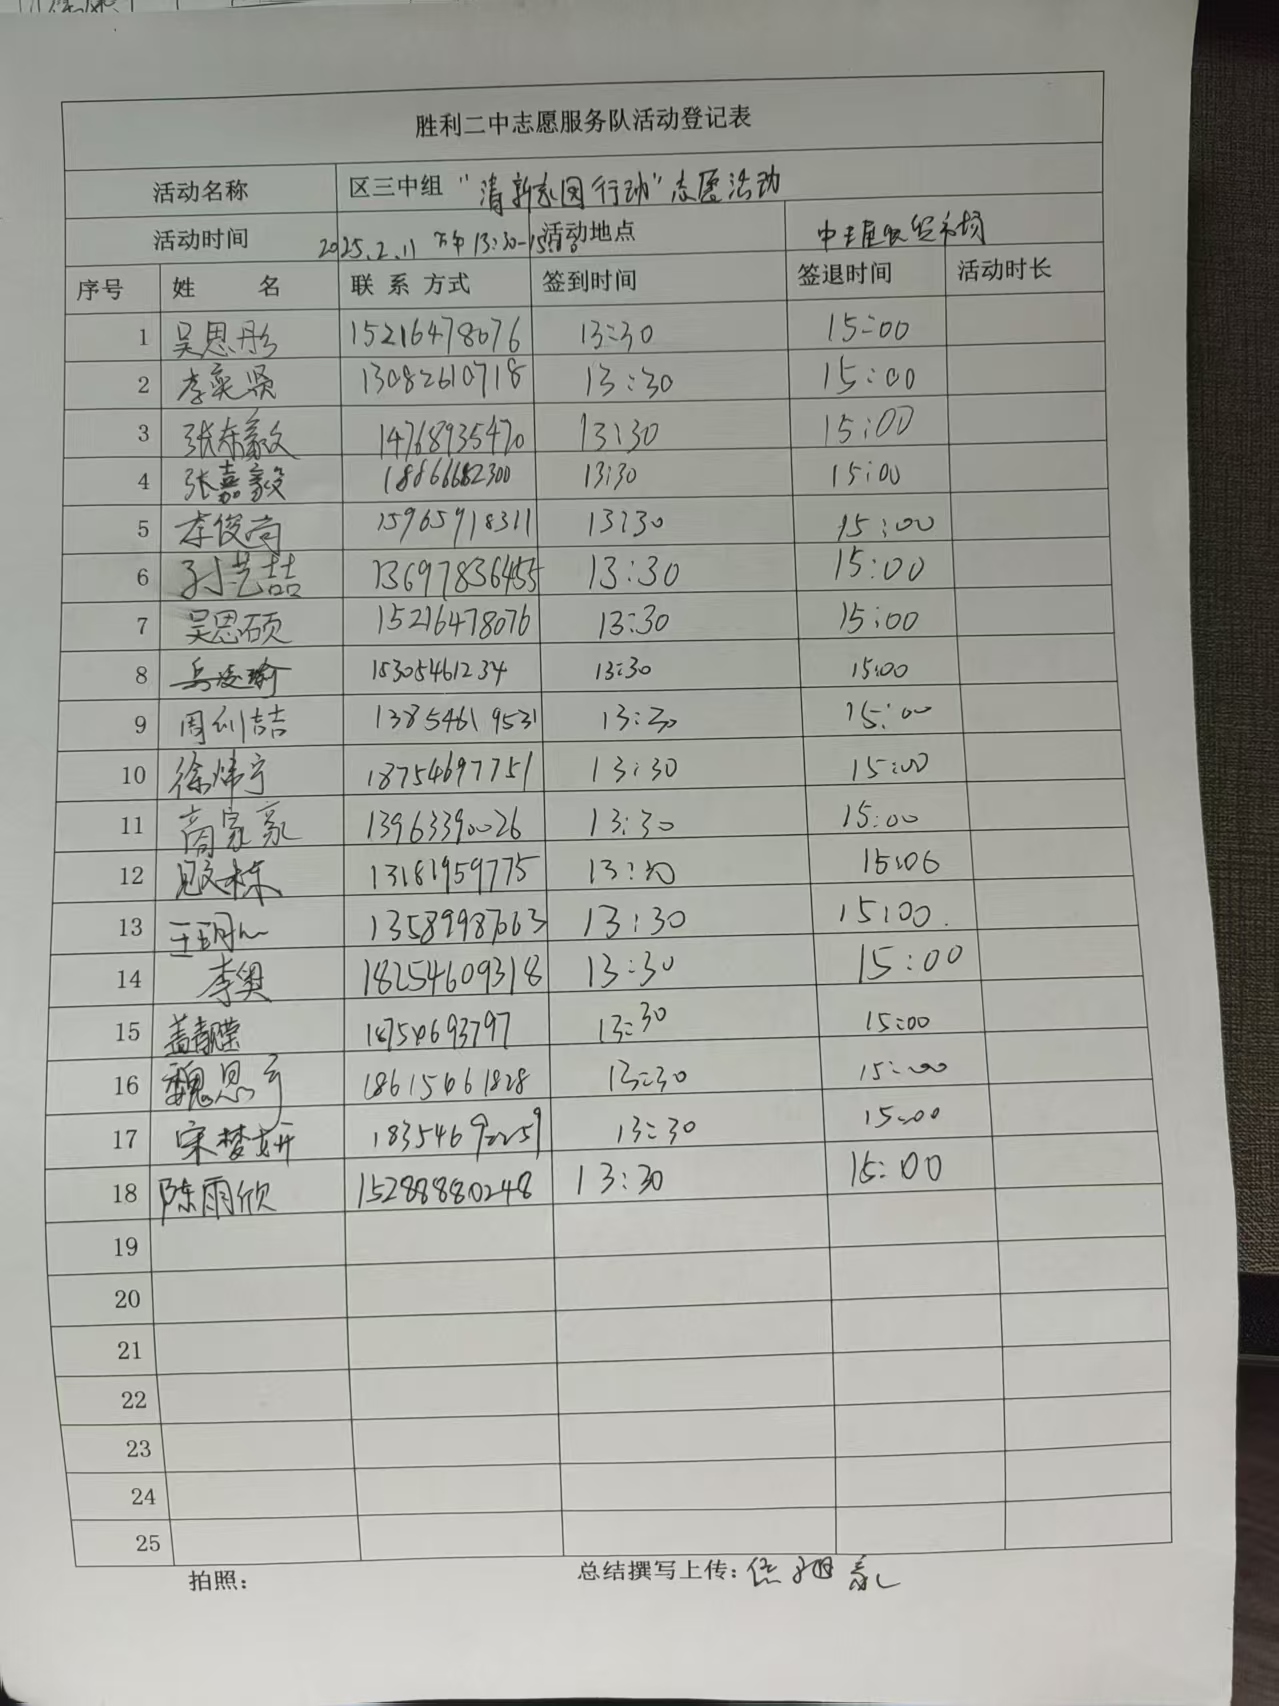 胜利二中志愿服务队活动登记表
活动名称 区三中组 “清新家园行动”志愿活动
活动时间 2025.2.11 下午 13:30-15:00 活动地点 农贸市场
序号 姓 名 联 系 方式 签到时间 签退时间 活动时长
1 吴思彤 15216478076 13:30 15:00
2 李奕贤 13082610718 13:30 15:00
3 张东毅 14768935470 13:30 15:00
4 张嘉毅 18866682300 13:30 15:00
5 李俊尚 15965918311 13:30 15:00
6 孙艺喆 13697836455 13:30 15:00
7 吴思硕 15216478076 13:30 15:00
8 岳凌瑜 18305461234 13:30 15:00
9 周利喆 13854619531 13:30 15:00
10 徐炜宁 18754697751 13:30 15:00
11 商家豪 13963390026 13:30 15:00
12 13181959775 13:30 15:00
13 13589987663 13:30 15:00.
14 李奥 18254609318 13:30 15:00
15 盖 18754693797 13:30 15:00
16 魏思 18615461828 13:30 15:00
17 宋梦妍 18354692259 13:30 15:00
18 陈雨欣 15288880248 13:30 15:00
19
20
21
22
23
24
25
拍照： 总结撰写上传：